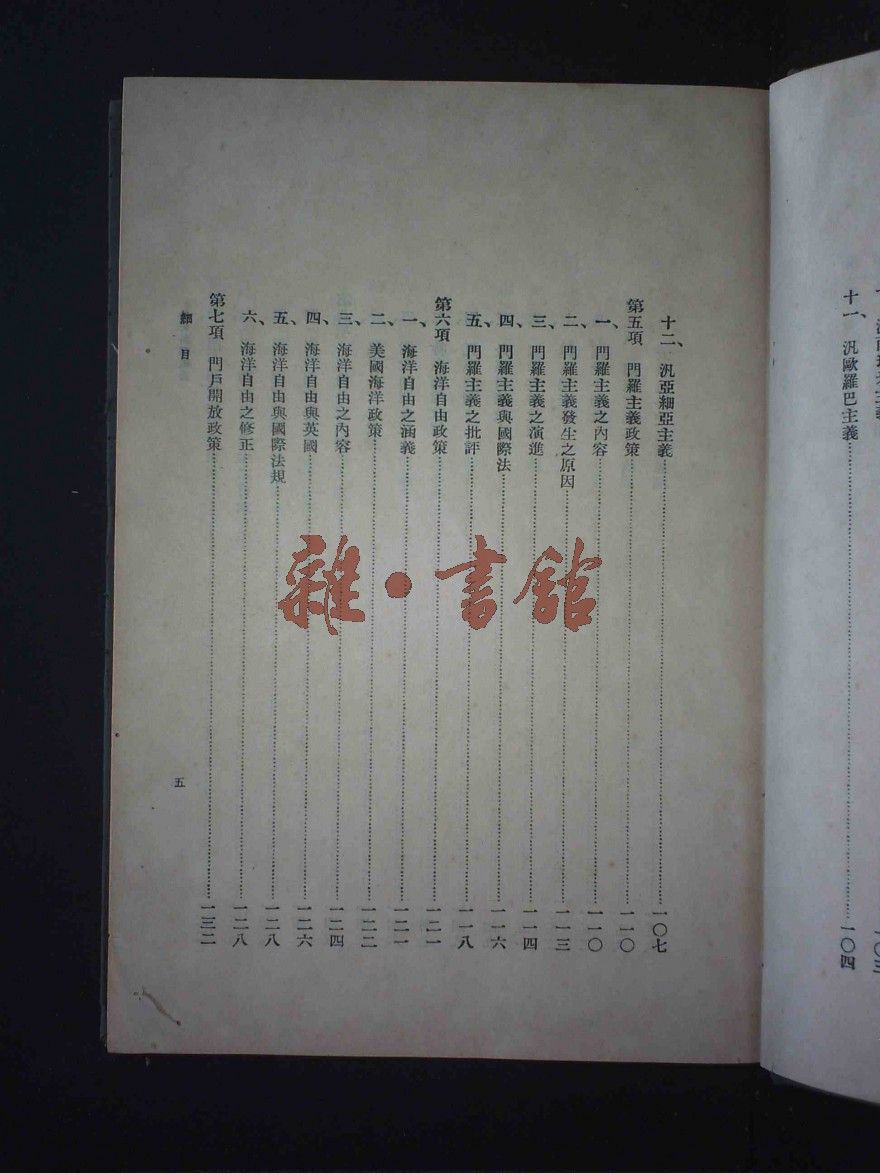 十一、汎歐羅巴主義……一〇四
十二、汎亞細亞主義……一〇七
第五項 門羅主義政策……一一〇
一、門羅主義之內容……一一〇
二、門羅主義發生之原因……一一三
三、門羅主義之演進……一一四
四、門羅主義與國際法……一一六
五、門羅主義之批評……一一八
第六項 海洋自由政策……一二一
一、海洋自由之涵義……一二一
二、美國海洋政策……一二二
三、海洋自由之內容……一二四
四、海洋自由與英國……一二六
五、海洋自由與國際法規……一二八
六、海洋自由之修正……一二八
第七項 門戶開放政策……一三二
細目
五
雜·書館